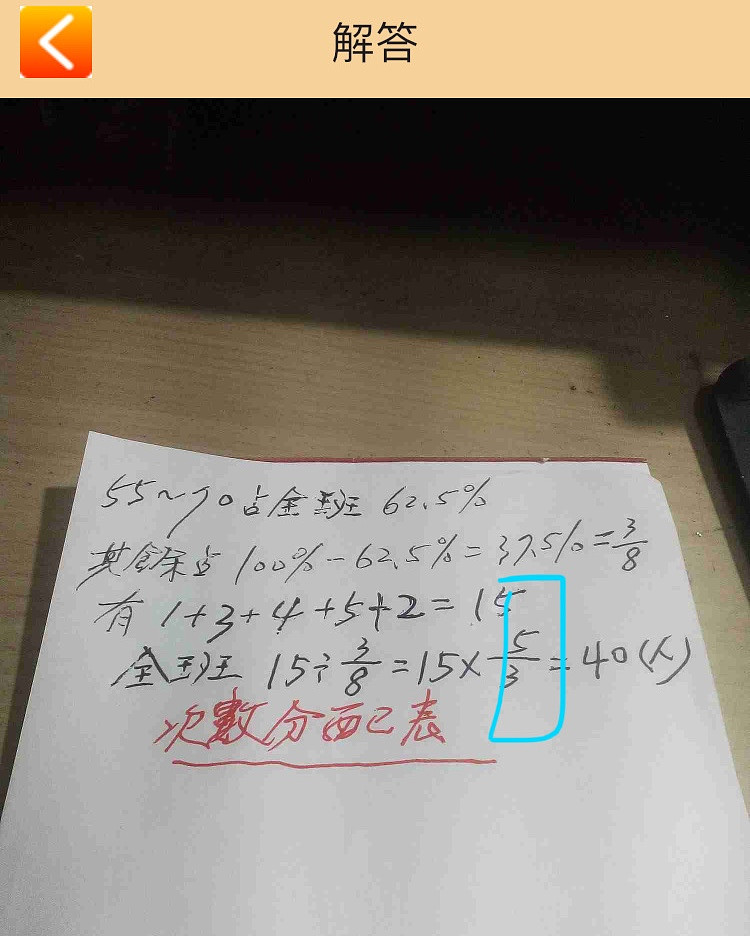 解答
55~90占全班 62.5%
其餘占 100%-62.5%=37.5%=3/8
有 1+3+4+5+2=15
全班 15÷3/8=15×5/3=40(人)
次數分配表